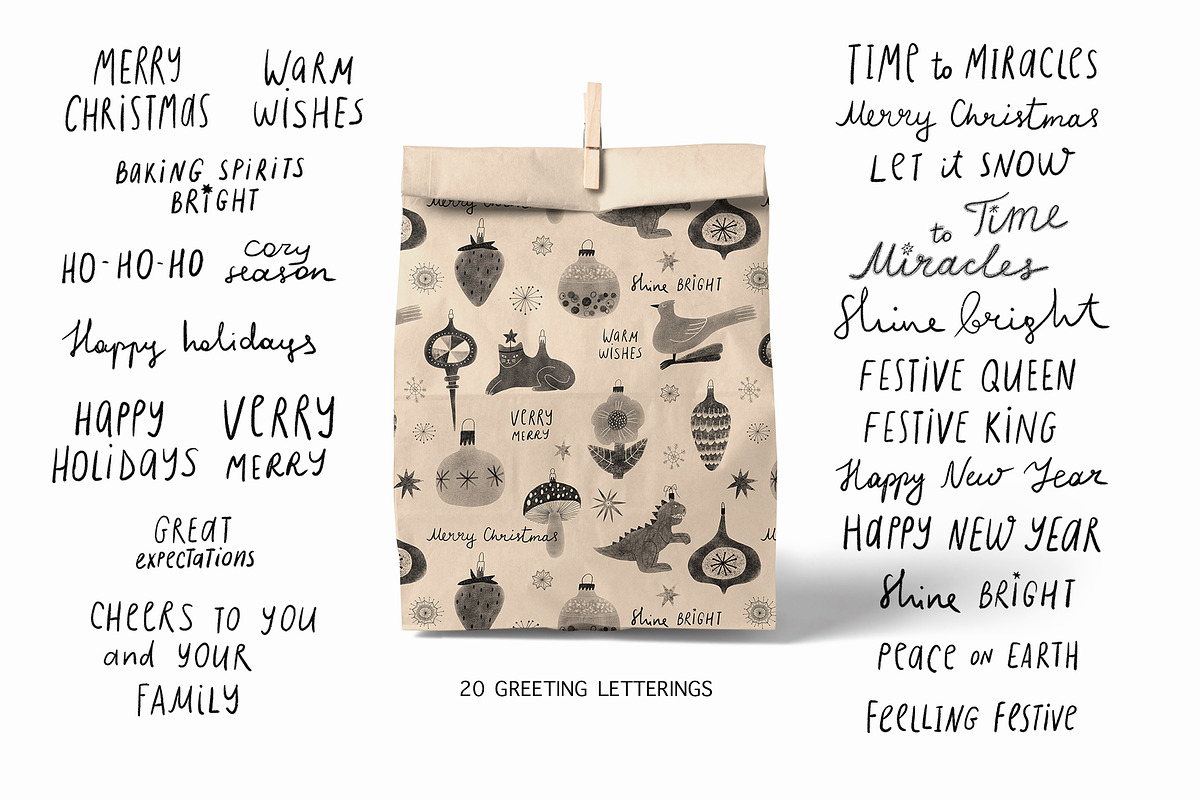 MERRY
CHRISTMAS
WARM
WISHES
BAKING SPIRITS
BRIGHT
HO-HO-HO
cozy
season
Happy holidays
HAPPY
HOLIDAYS
VERRY
MERRY
GREAT
expectations
CHEERS TO YOU
and YOUR
FAMILY
Merry Christmas
Shine BRIGHT
WARM
WISHES
VERRY
MERRY
Merry Christmas
Shine BRIGHT
20 GREETING LETTERINGS
TIME to MIRACLES
Merry Christmas
LET it SNOW
Time
to
Miracles
Shine bright
FESTIVE QUEEN
FESTIVE KING
Happy New Year
HAPPY NEW YEAR
Shine BRIGHT
PEACE ON EARTH
FEELLING FESTIVE